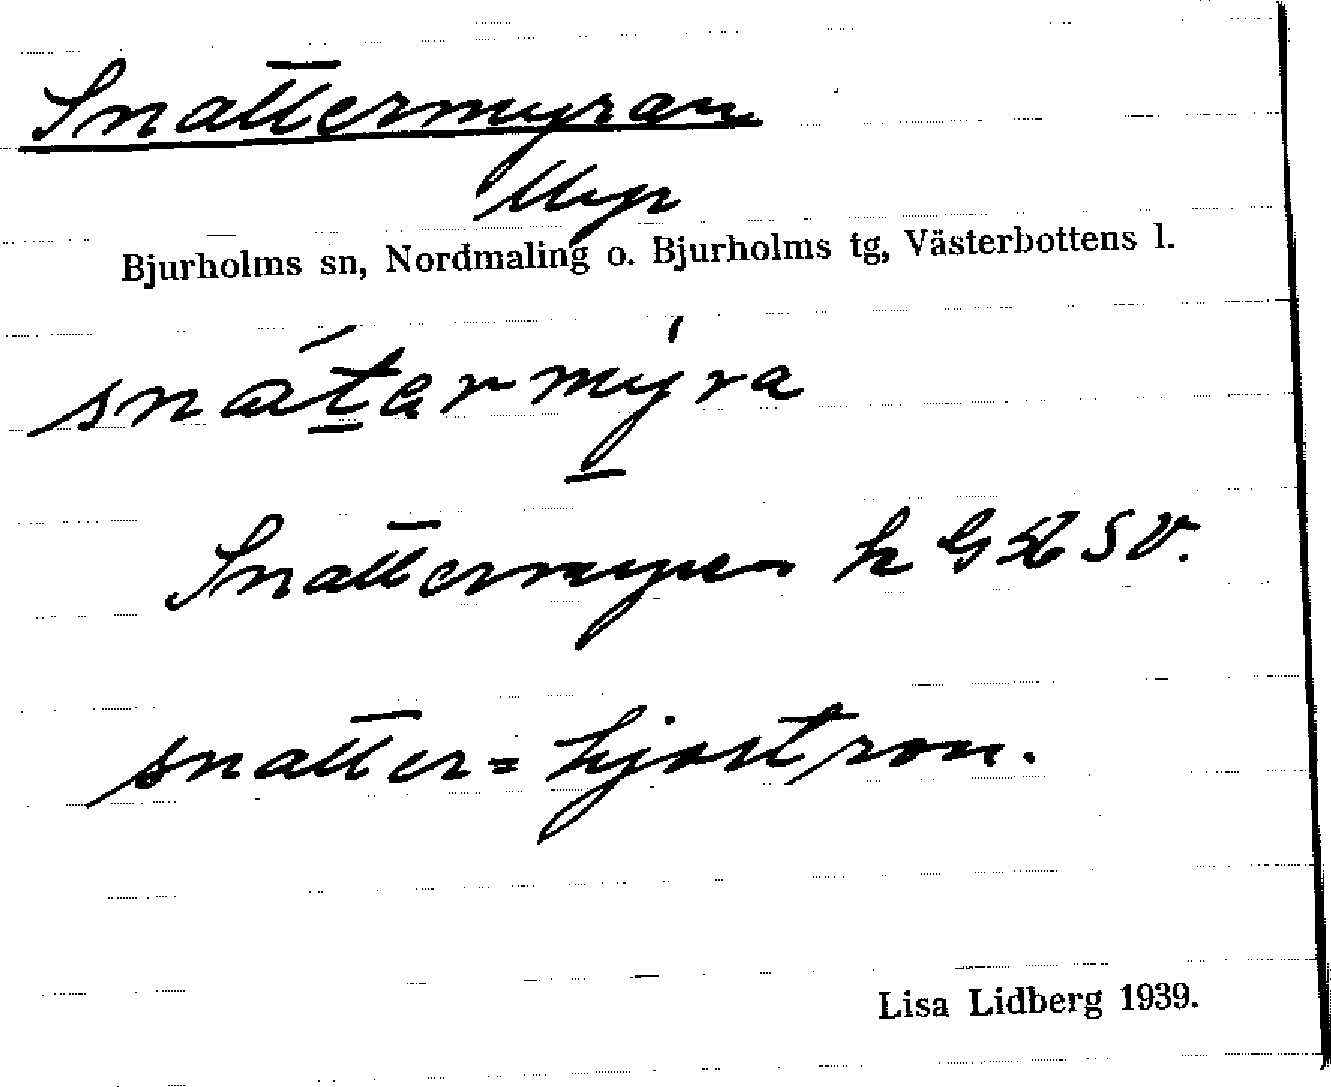 Snattermyran
Myr
Bjurholms sn, Nordmaling o. Bjurholms tg, Västerbottens l.
snátarmýra
Snattermyren k G St S V.
snatter = hjortron.
Lisa Lidberg 1939.